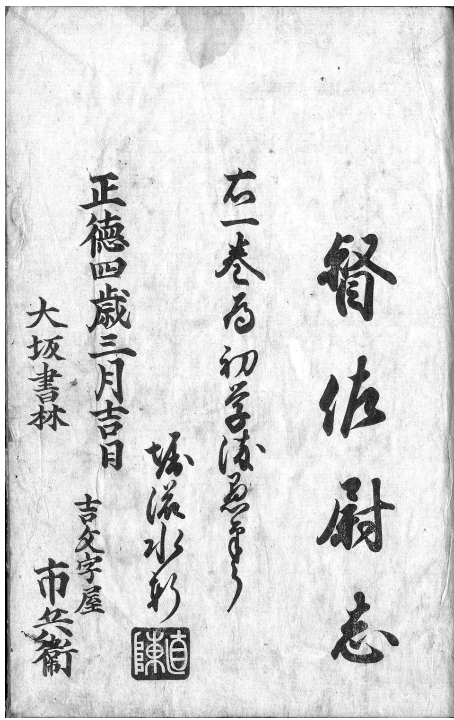 督佐尉志
右一巻為初学染愚筆了
堀流水軒
直陳
正徳四歳三月吉日
大坂書林
吉文字屋
市兵衛